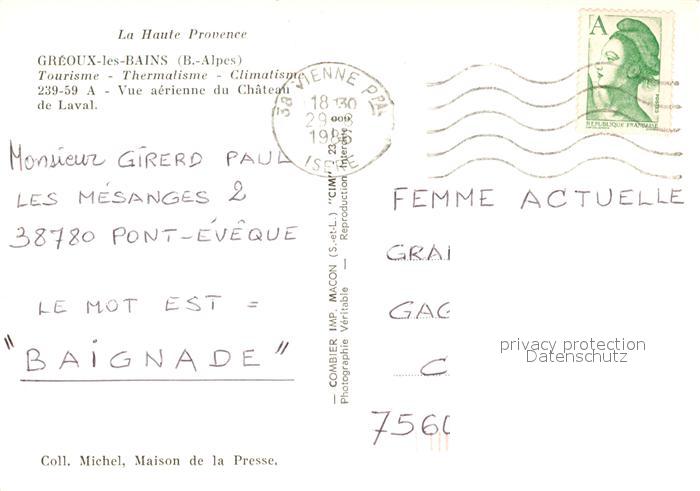 La Haute Provence
GRÉOUX-les-BAINS (B.-Alpes)
Tourisme - Thermalisme - Climatisme
239-59 A - Vue aérienne du Château
de Laval.
Monsieur GIRERD PAUL
LES MÉSANGES 2
38780 PONT-ÉVÊQUE
LE MOT EST =
"BAIGNADE"
Coll. Michel, Maison de la Presse.
— COMBIER IMP. MACON (S.-et-L.) "CIM"
Photographie Véritable — Reproduction Interdite
38 VIENNE PPAL
18 H 30
ISERE
A
REPUBLIQUE FRANÇAISE
FEMME ACTUELLE
GRAI
GAG
C
7560
privacy protection
Datenschutz